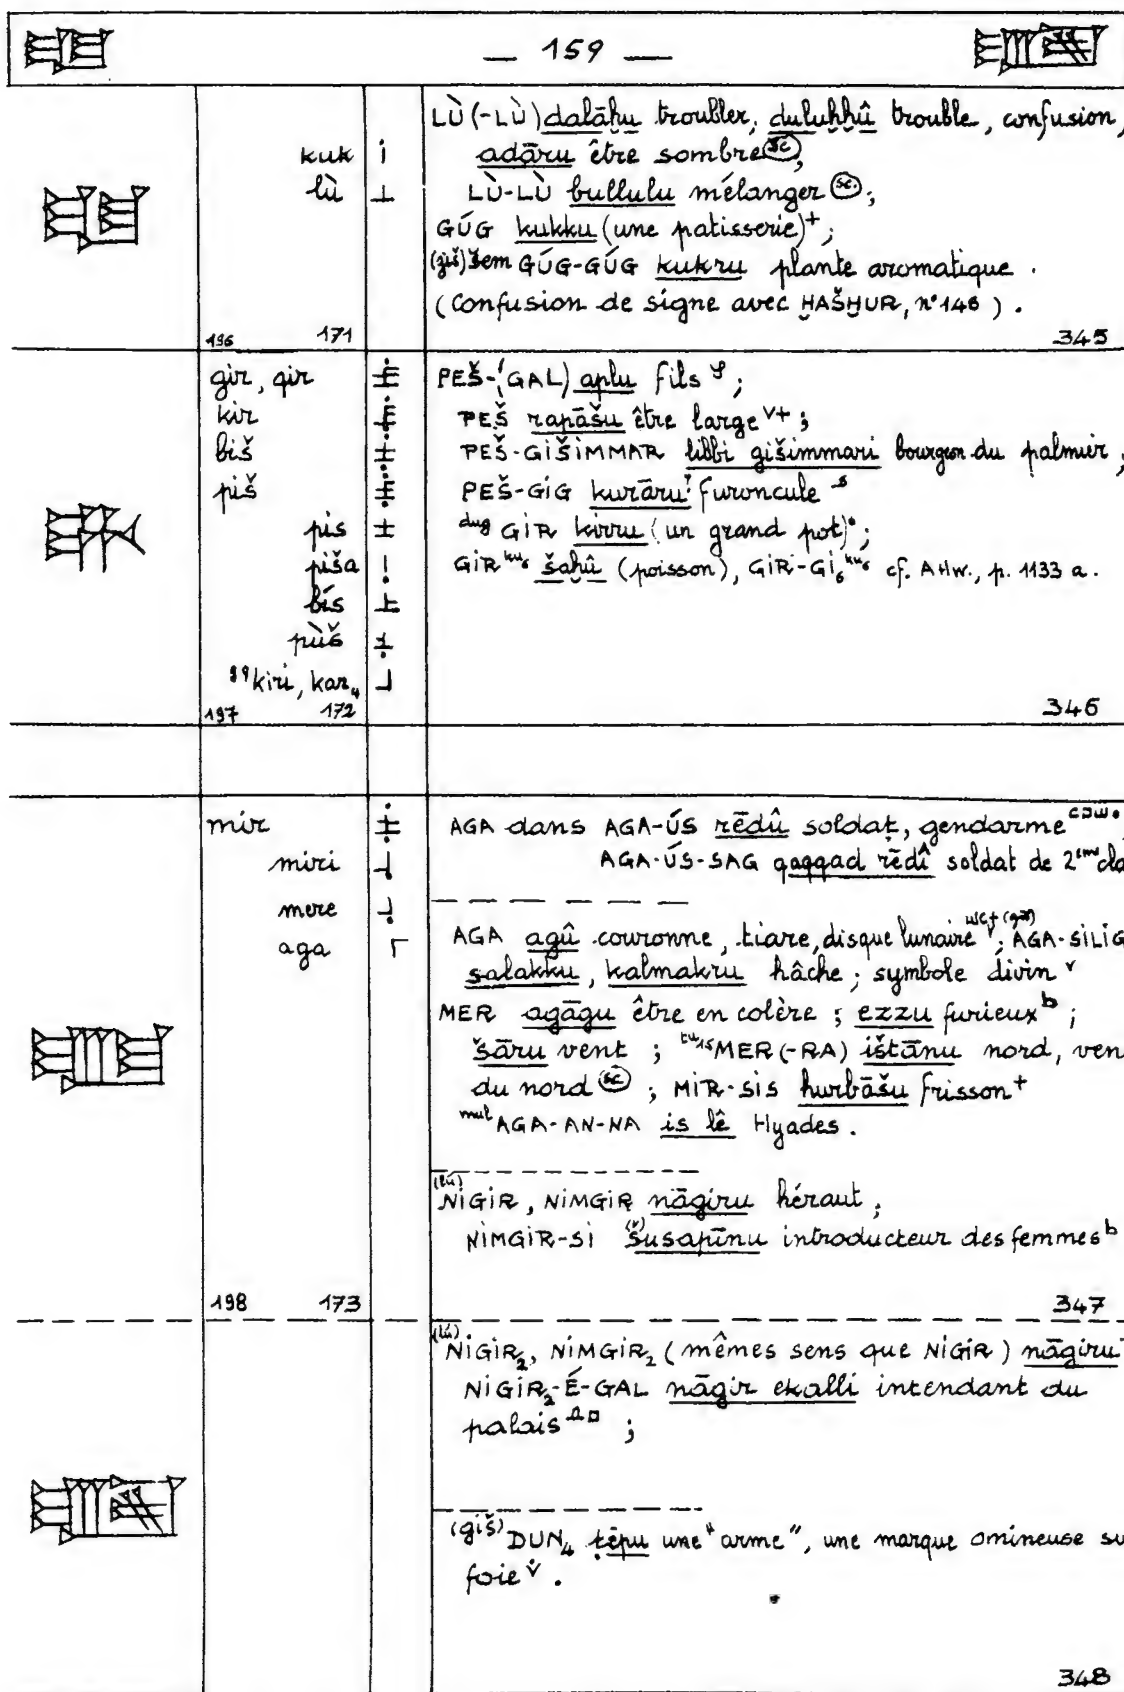 — 159 —
kuk
lù
LÙ (-LÙ) dalāḫu troubler, duluḫḫû trouble, confusion,
adāru être sombre (sc),
LÙ-LÙ bullulu mélanger (sc.);
GÚG kukku (une patisserie)+;
(giš) šem GÚG-GÚG kukru plante aromatique.
(Confusion de signe avec ḪAŠḪUR, n° 146).
196 171 345
gir, qir
kir
biš
piš
pis
piša
bís
pùš
kiri, kar₄
PEŠ-(GAL) aplu fils;
PEŠ rapāšu être large v+;
PEŠ-GIŠIMMAR libbi gišimmari bourgeon du palmier,
PEŠ-GIG kurāru? furoncle
dug GIR kirru (un grand pot);
GIR ku₆ šaḫû (poisson), GIR-GI₆ ku₆ cf. AHw., p. 1133 a.
197 172 346
mir
miri
mere
aga
AGA dans AGA-ÚS rēdû soldat, gendarme
AGA-ÚS-SAG qaqqad rēdî soldat de 2ème cla
AGA agû couronne, tiare, disque lunaire; AGA-SILIG
salakku, kalmakru hâche; symbole divin v
MER agāgu être en colère; ezzu furieux b;
šāru vent; tu₁₅ MER (-RA) ištānu nord, ven
du nord (sc); MIR-SIS ḫurbāšu frisson+
mul AGA-AN-NA is lê Hyades.
(lú) NIGIR, NIMGIR nāgiru héraut;
NIMGIR-SI šusapīnu introducteur des femmes b
198 173 347
(lú) NIGIR₂, NIMGIR₂ (mêmes sens que NIGIR) nāgiru
NIGIR₂-É-GAL nāgir ekalli intendant du
palais;
(giš) DUN₄ ṭēpu une "arme", une marque omineuse su
foie v.
348